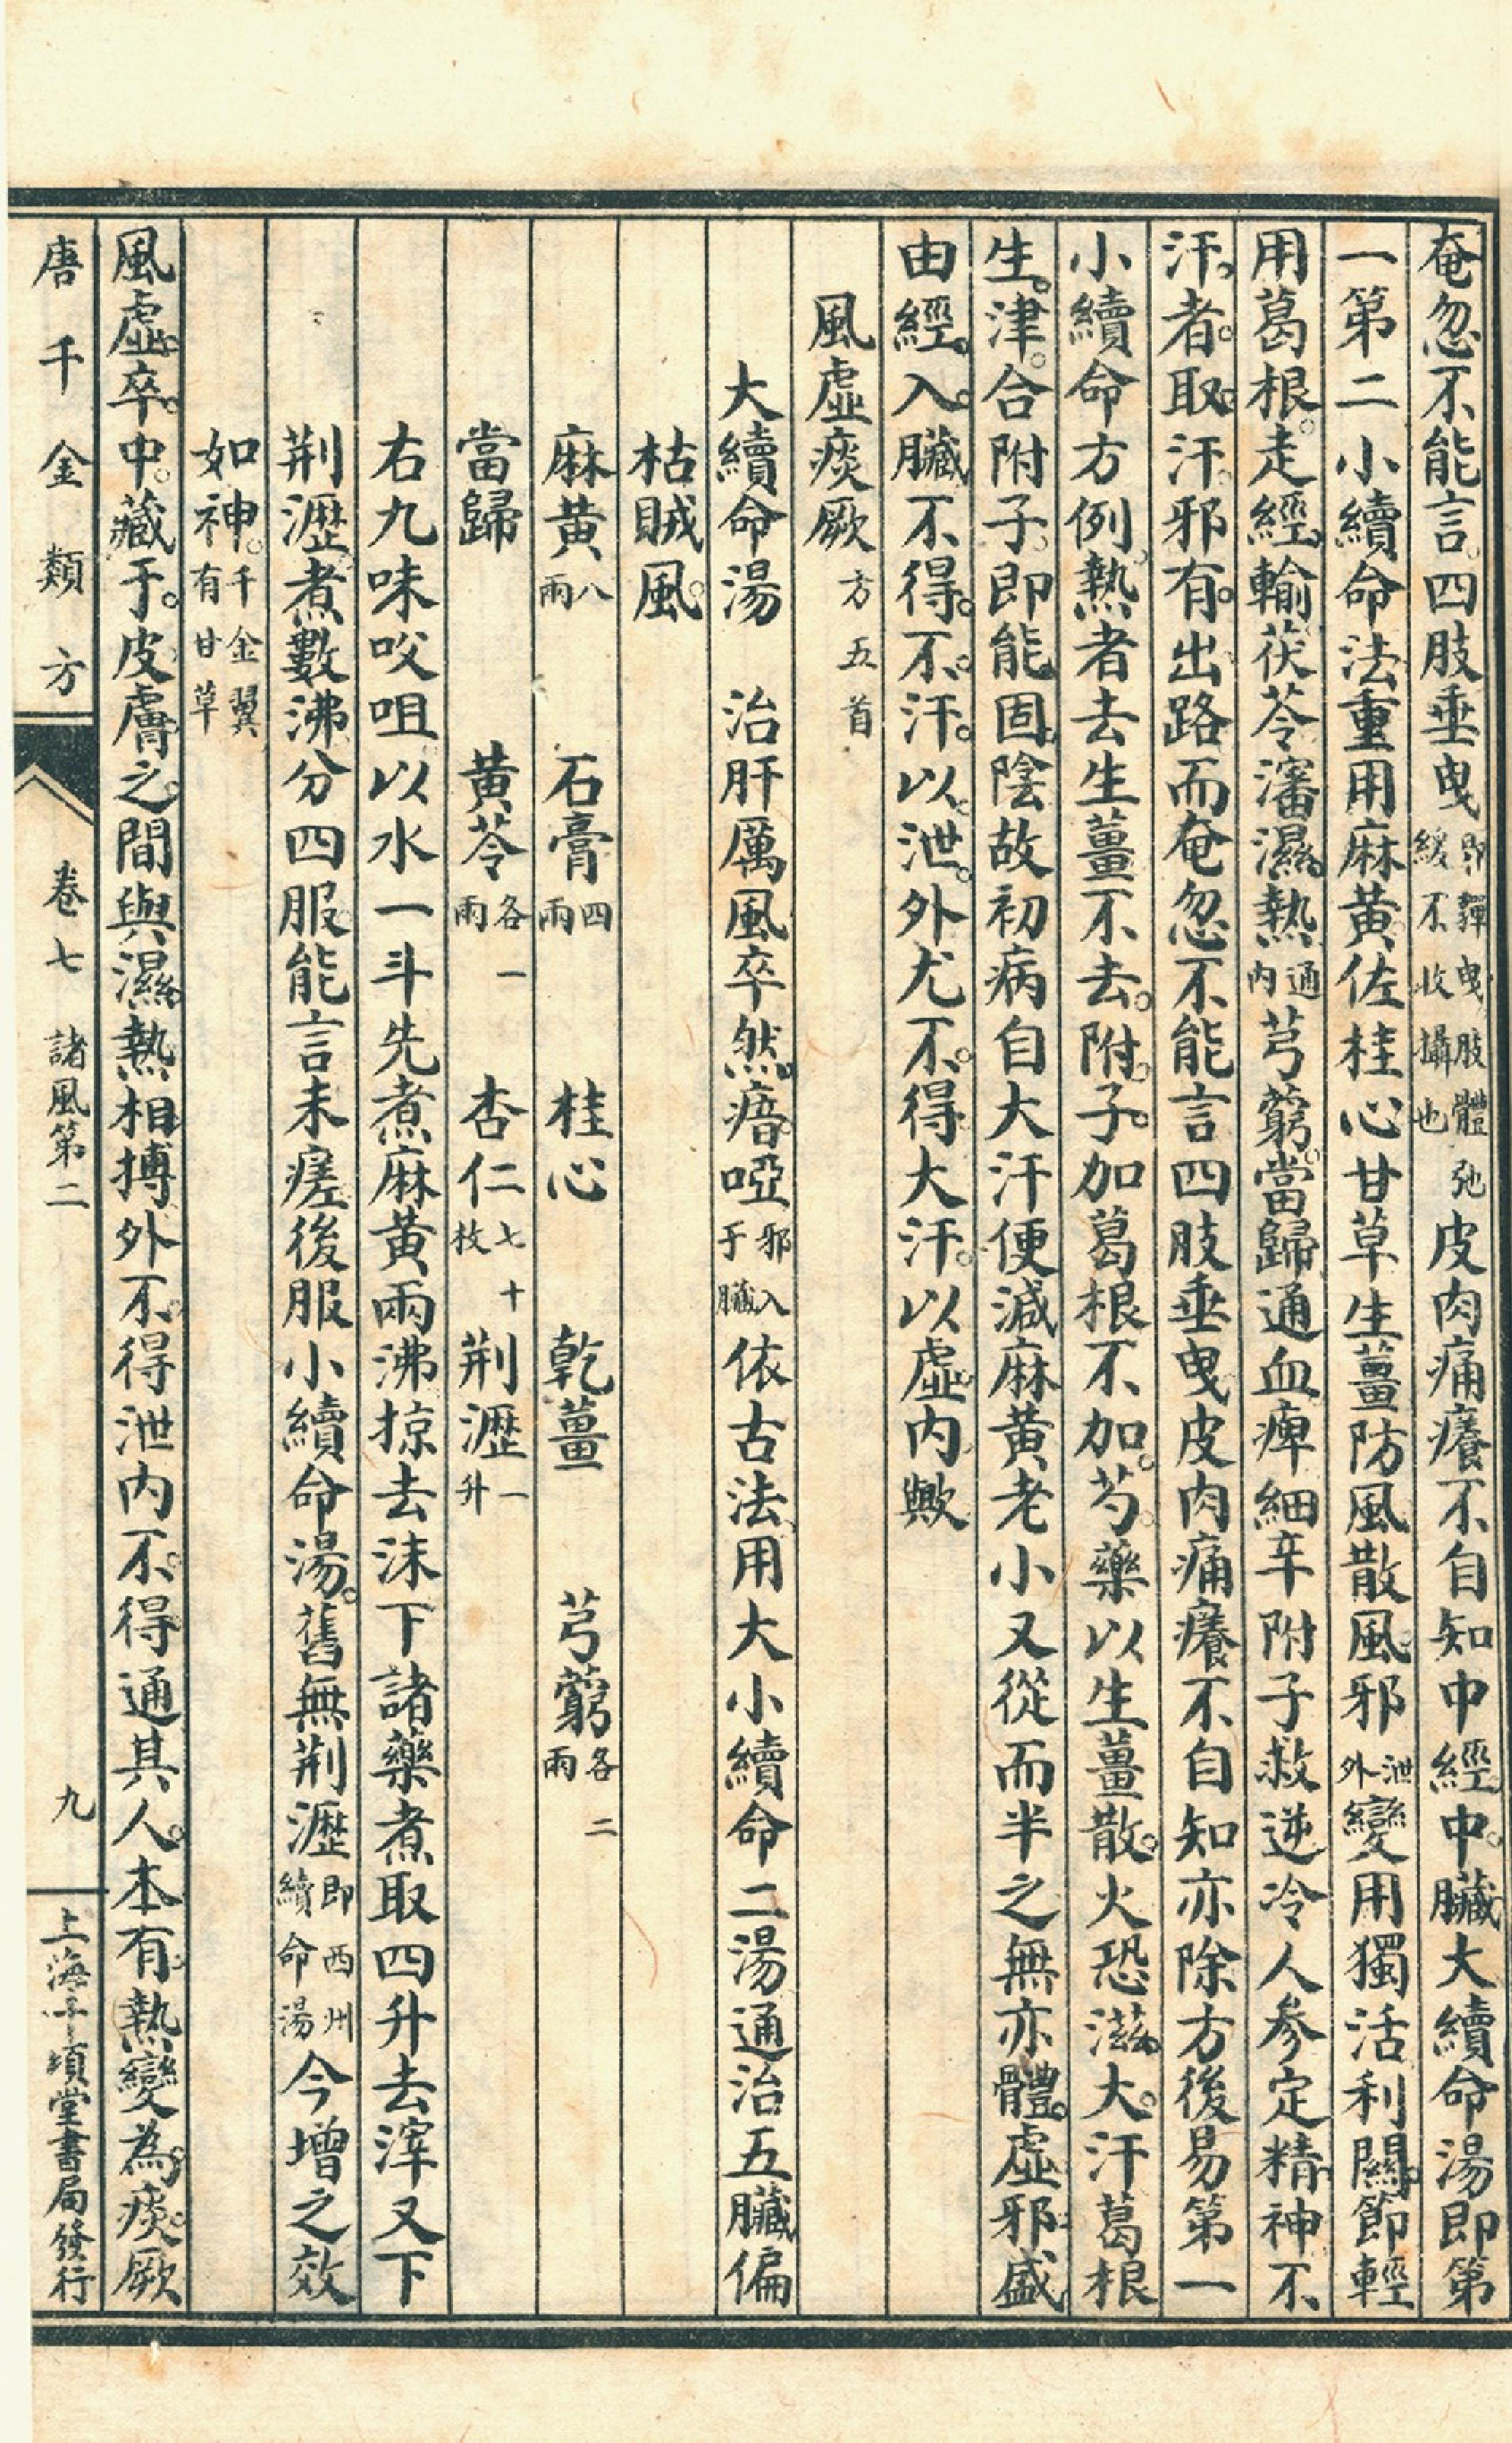 奄忽不能言四肢垂曳即嚲曳肢體弛緩不收攝也皮肉痛癢不自知中經中臟大續命湯即第
一第二小續命法重用麻黃佐桂心甘草生薑防風散風邪泄外變用獨活利關節輕
用葛根走經輸茯苓瀋濕熱通內芎藭當歸通血痺細辛附子救逆冷人參定精神不
汗者取汗邪有出路而奄忽不能言四肢垂曳皮肉痛癢不自知亦除方後易第一
小續命方例熱者去生薑不去附子加葛根不加芍藥以生薑散火恐滋大汗葛根
生津合附子即能固陰故初病自大汗便減麻黃老小又從而半之無亦體虛邪盛
由經入臟不得不汗以泄外尤不得大汗以虛內歟
風虛痰厥方五首
大續命湯　治肝厲風卒然瘖啞邪入于臟依古法用大小續命二湯通治五臟偏
枯賊風
麻黃八兩　石膏四兩　桂心　乾薑　芎藭各二兩
當歸　黃芩各一兩　杏仁七十枚　荆瀝一升
右九味㕮咀以水一斗先煮麻黃兩沸掠去沫下諸藥煮取四升去滓又下
荆瀝煮數沸分四服能言未瘥後服小續命湯舊無荆瀝即西州續命湯今增之效
如神千金翼有甘草
風虛卒中藏于皮膚之間與濕熱相搏外不得泄內不得通其人本有熱變為痰厥
唐千金類方　卷七　諸風第二　九　上海千頃堂書局發行